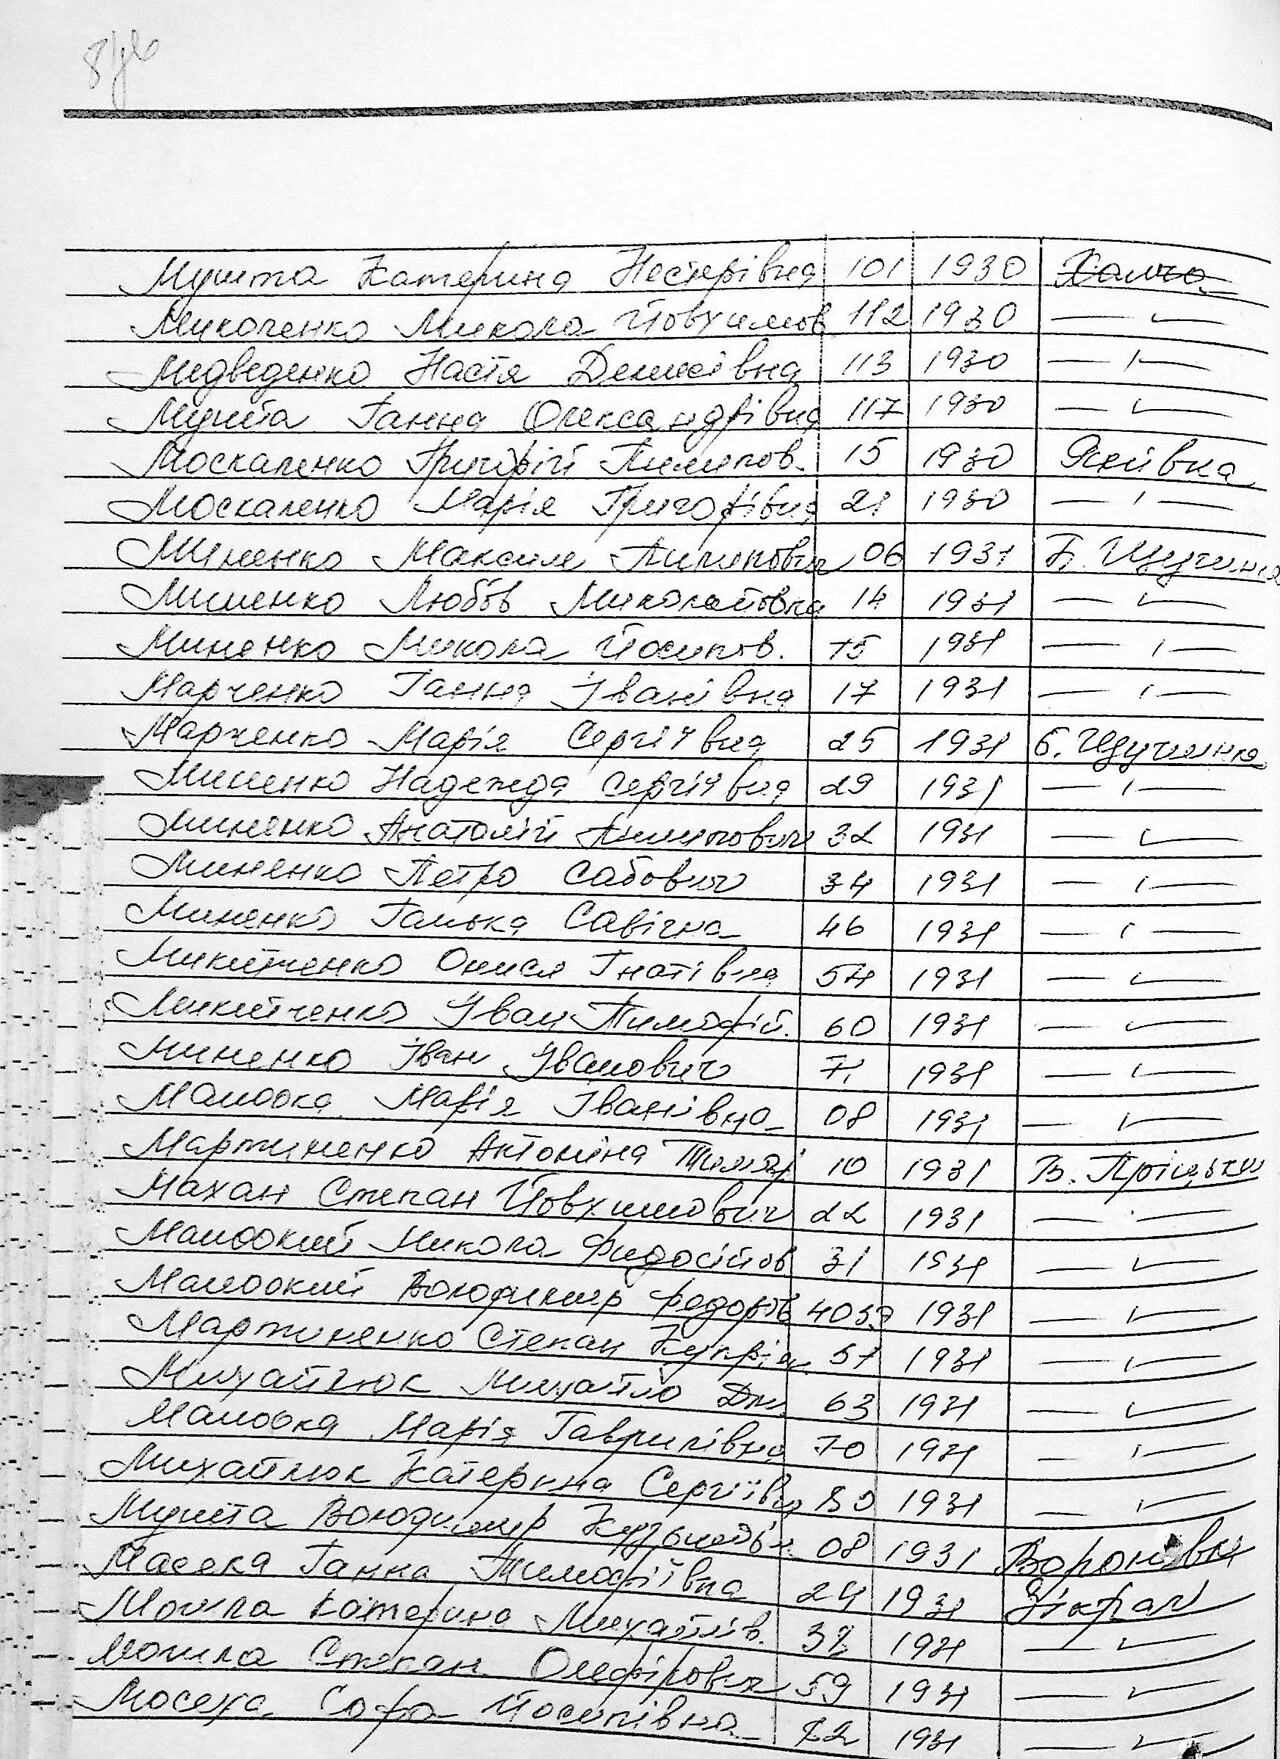 Мушта Катерина Нестерівна 101 1930 Халча
Миколенко Микола Йовхимов 112 1930 — " —
Медведенко Настя Денисівна 113 1930 — " —
Мушта Ганна Олександрівна 117 1930 — " —
Москаленко Григорій Пилипов. 15 1930 Яхівка
Москаленко Марія Григорівна 21 1930 — " —
Миненко Максим Пилипович 06 1931 Б. Щучинка
Миненко Любов Миколаївна 14 1931 — " —
Миненко Микола Йосипов. 15 1931 — " —
Марченко Ганна Іванівна 17 1931 — " —
Марченко Марія Сергіївна 25 1931 Б. Щучинка
Миненко Надежда Сергіївна 29 1931 — " —
Миненко Анатолій Пилипович 32 1931 — " —
Миненко Петро Савович 34 1931 — " —
Миненко Ганька Савічна 46 1931 — " —
Микитченко Онися Гнатівна 54 1931 — " —
Микитченко Іван Тимофій. 60 1931 — " —
Миненко Іван Іванович 71 1931 — " —
Марія Іванівна 08 1931 — " —
Мартиненко Антоніна Тимоф 10 1931 В. Пріцьки
Махан Степан Йовхимович 22 1931 — " —
Микола Федосійов 31 1931 — " —
Володимир Федоров 1931 — " —
Мартиненко Степан Купріян 51 1931 — " —
Михайлюк Михайло Дми 63 1931 — " —
Марія Гаврилівна 70 1931 — " —
Михайлюк Катерина Сергіївн 80 1931 — " —
Мушта Володимир Кузьмович 08 1931 Воронівка
Масека Ганна Тимофіївна 24 1931
Могила Катерина Михайлів. 32 1931 — " —
Могила Степан Олефірович 59 1931 — " —
Софа Йосипівна 1931 — " —